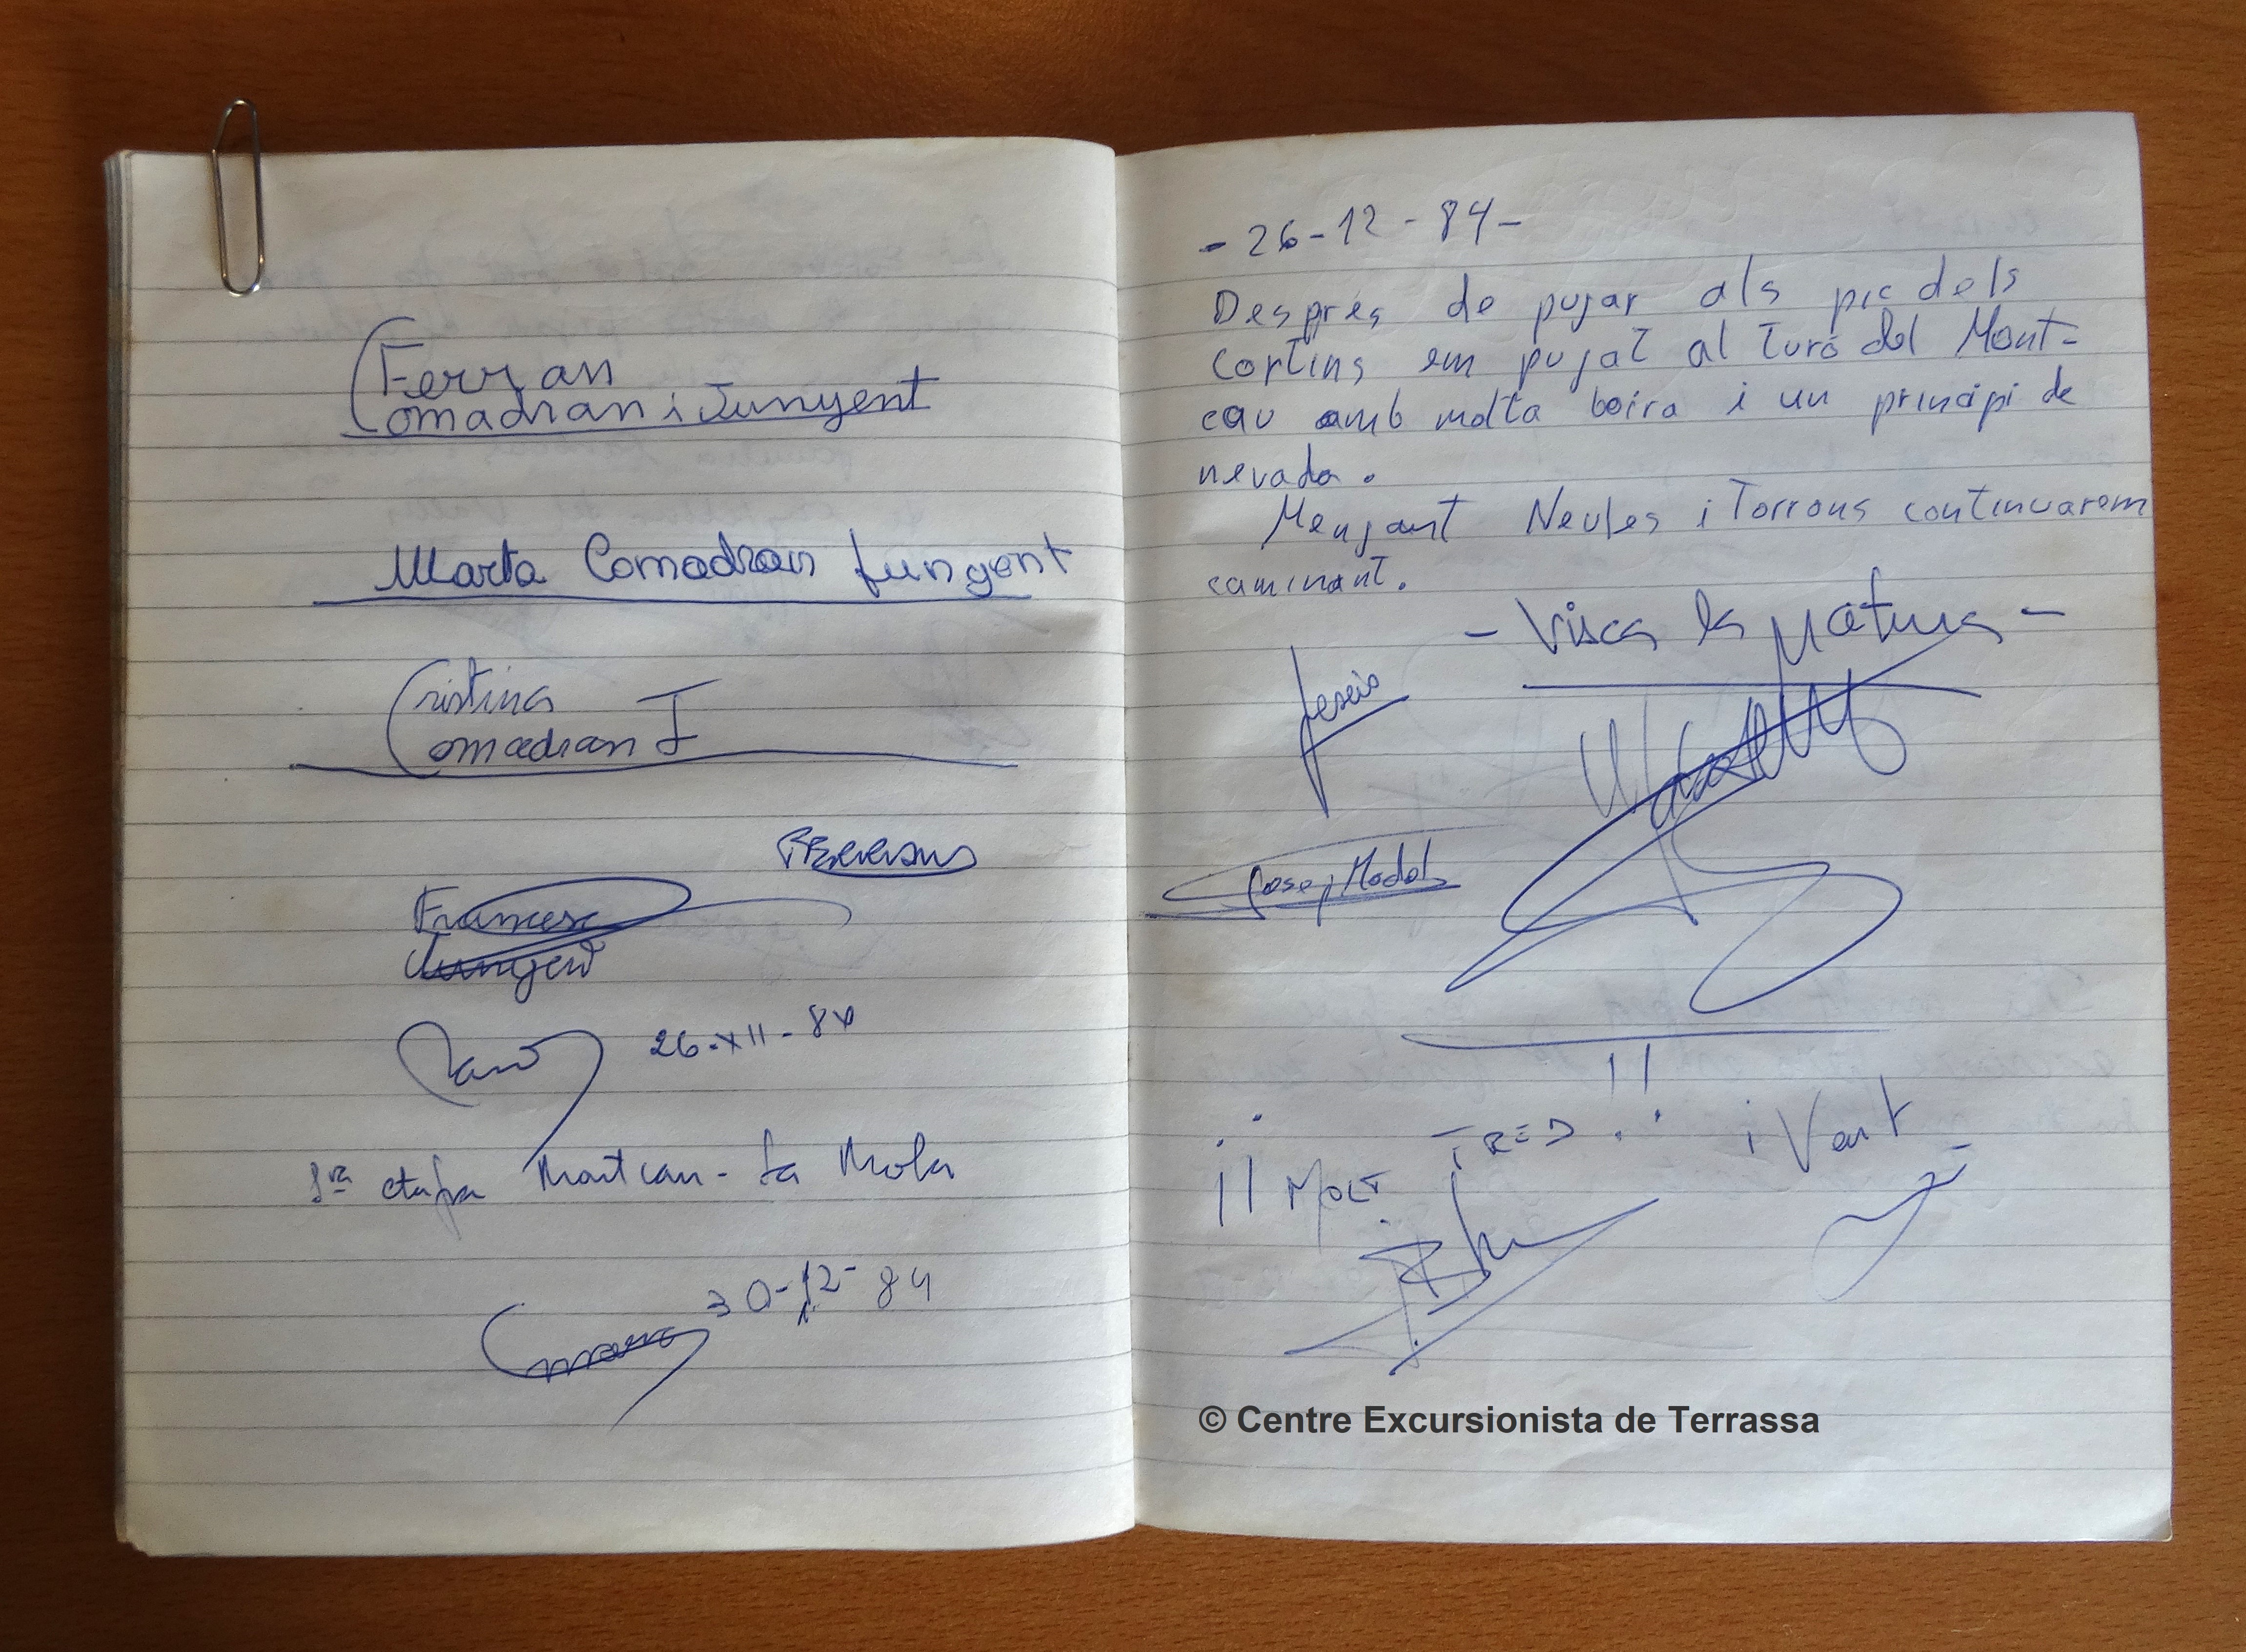 Ferran
Comadran i Junyent
Marta Comadran Junyent
Cristina
Comadran J
Francesc
Junyent
26-XII-84
1ra etapa Montcau - La Mola
30-12-84
- 26-12-84 -
Despres de pujar als pic dels
cortins em pujat al Turó del Mont-
cau amb molta boira i un principi de
nevada.
Menjant Neules i Torrons continuarem
caminant.
- Visca la Natura -
Josep Modol
¡¡ MOLT FRED !! i Vent
© Centre Excursionista de Terrassa